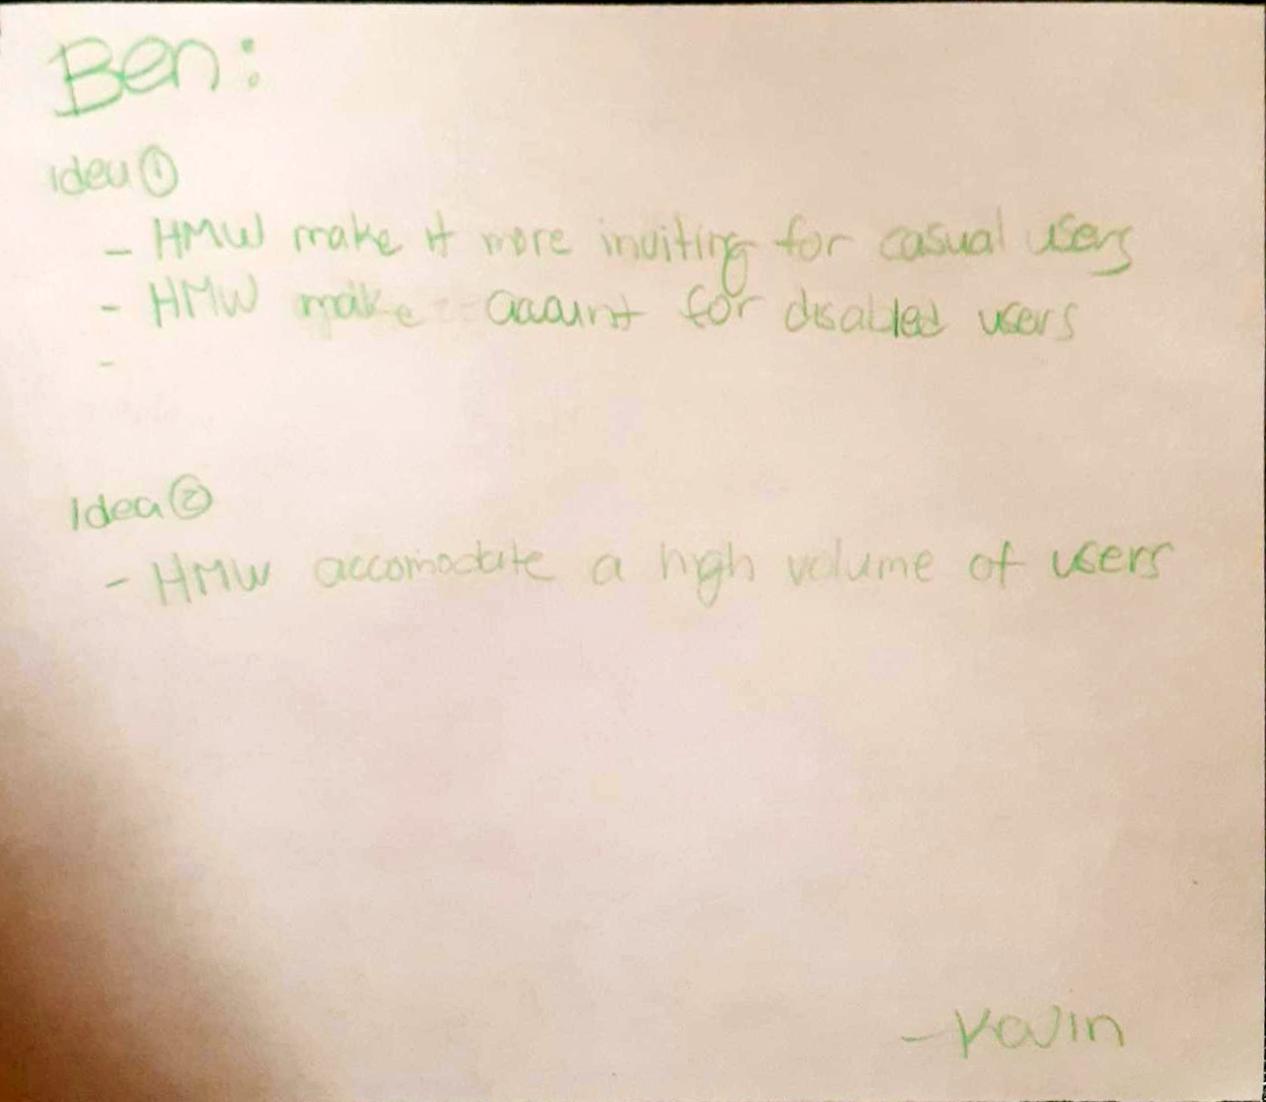 Ben:
idea ①
- HMW make it more inviting for casual users
- HMW make account for disabled users
-
Idea ②
- HMW accomodate a high volume of users
- Kavin